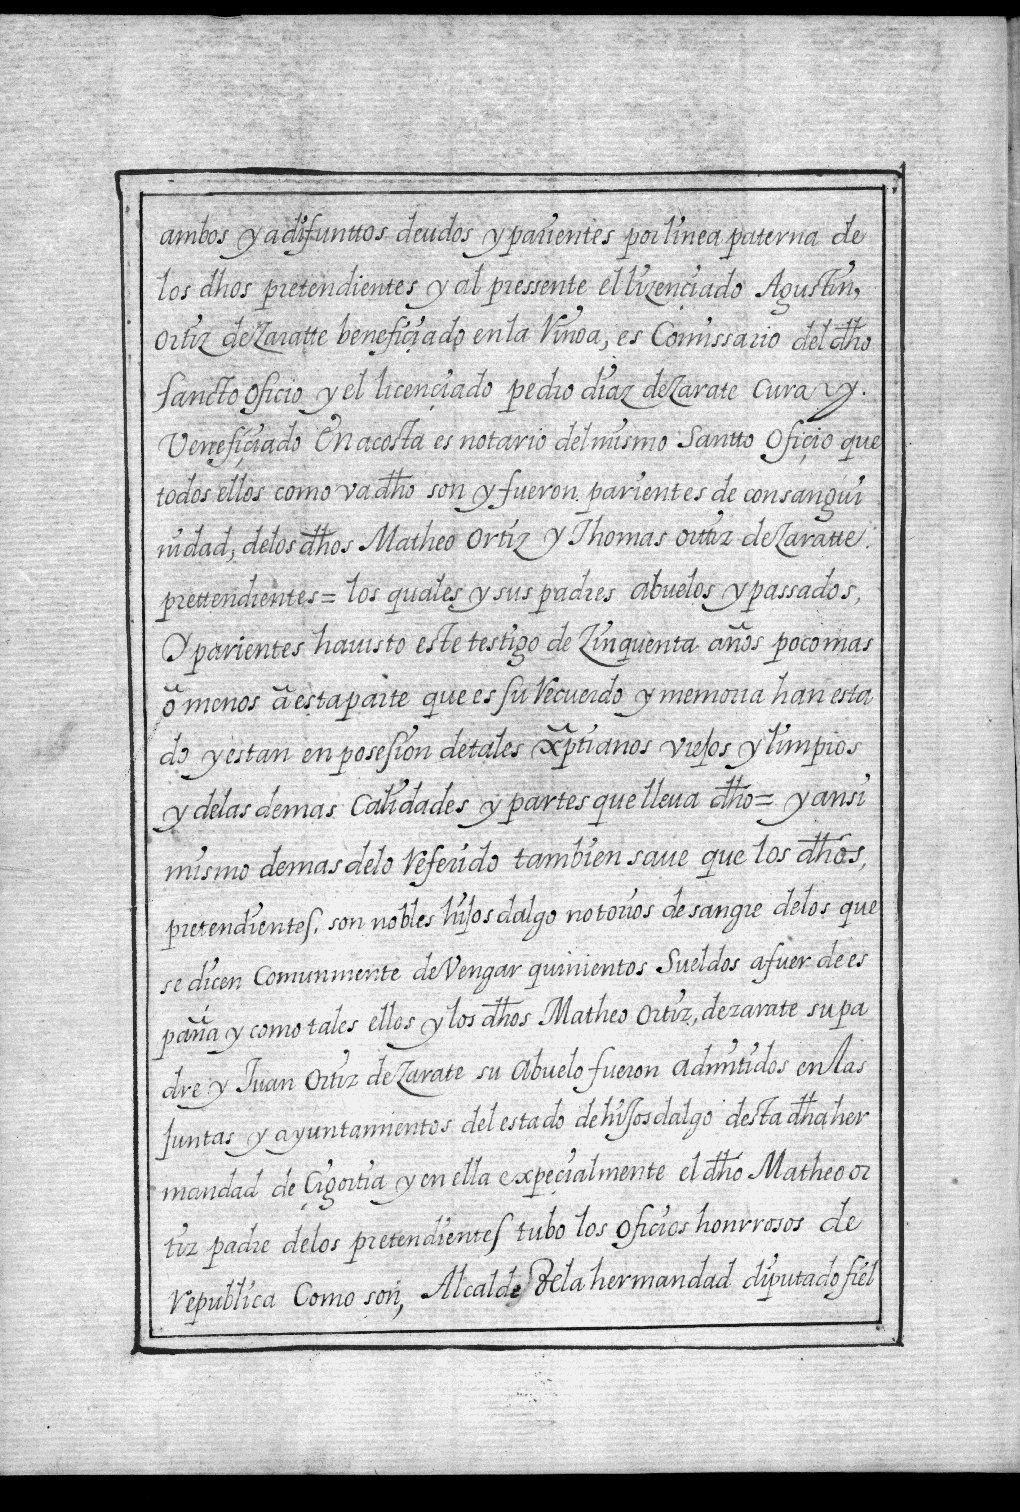 ambos y a difunttos deudos y parientes por linea paterna de
los dhos pretendientes y al pressente el lizençiado Agustin,
Ortiz de Zaratte benefiçiado en la Vinoa, es Comissario del dho
sancto oficio y el licençiado pedro diaz de Zarate Cura y.
Venefiçiado En acosta es notario del mismo Santto Ofiçio que
todos ellos como va dho son y fueron parientes de consangui
nidad, de los dhos Matheo Ortiz y Thomas ortiz de Zaratte.
prettendientes= los quales y sus padres abuelos y passados,
Y parientes ha uisto este testigo de Zinquenta años poco mas
õ menos ã esta parte que es su Recuerdo y memoria han esta
do y estan en posesion de tales xptianos viejos y limpios
y de las demas Calidades y partes que lleua dho= y ansi
mismo demas de lo Referido tambien saue que los dhos,
pretendientes. son nobles hijos dalgo notorios de sangre de los que
se dicen Comunmente deVengar quinientos Sueldos a fuer de es
paña y como tales ellos y los dhos Matheo Ortiz, de zarate su pa
dre y Juan Ortiz de Zarate su Abuelo fueron admitidos en las
Juntas y ayuntamientos del estado de hijosdalgo desta dha her
mandad de Çigoitia y en ella expeçialmente el dho Matheo or
tiz padre de los pretendientes tubo los oficios honrrosos de
Republica Como son, Alcalde De la hermandad diputado fiel